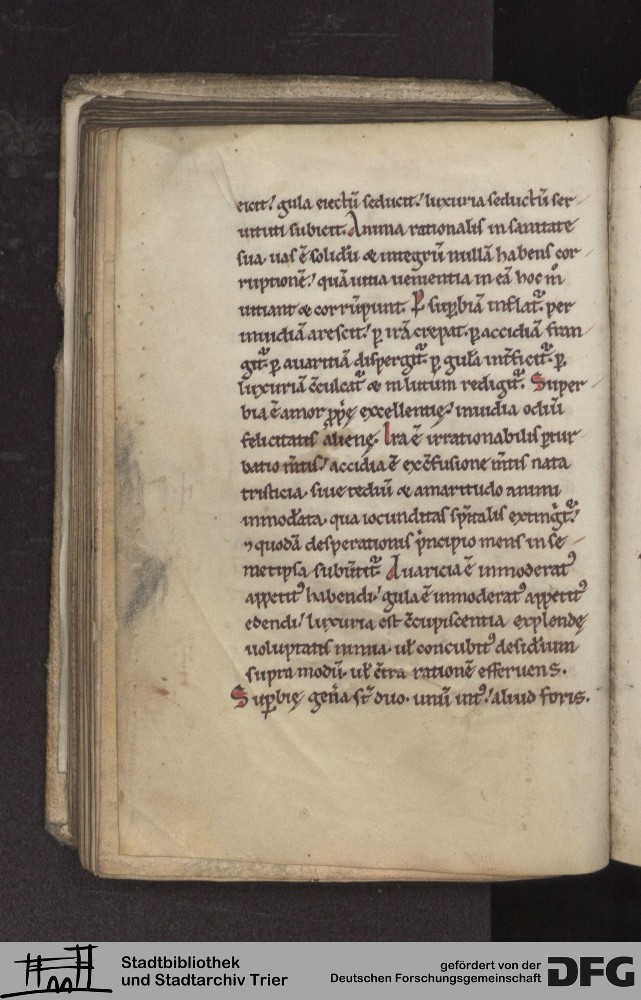 eicit. gula eiectū seducit. luxuria seductū ser
uituti subicit. Anima rationalis in sanitate
sua uas ē solidū & integrū nullā habens cor
ruptionē. quā uitia uenientia in eā hoc m̊
uitiant & corrūpunt. P supbiā inflat᷑. per
inuidiā arescit. ꝑ irā crepat. ꝑ accidiā fran
git᷑. ꝑ auaritiā dispergit᷑. ꝑ gulā inficit᷑. ꝑ
luxuriā ↄculcat᷑ & in lutum redigit᷑. Super
bia ē amor ꝓpę excellentię. inuidia odiū
felicitatis alienę. Ira ē irrationabilis ꝑtur
batio mtis. accidia ē ex ↄfusione mtis nata
tristicia. siue tediū & amaritudo animi
inmodata. qua iocunditas spitalis extingit᷑.
⁊ quodā desperationis pncipio mens in se
metipsa subuertit᷑. Auaricia ē inmoderatꝰ
appetitꝰ habendi. gula ē inmoderatꝰ appetitꝰ
edendi. luxuria est ↄcupiscentia explendę
uoluptatis nimia. ul concubitꝰ desiderium
supra modū. ul ↄtra rationē efferuens.
Supbię gena st duo. unū intꝰ. aliud foris.
Stadtbibliothek
und Stadtarchiv Trier
gefördert von der
Deutschen Forschungsgemeinschaft
DFG